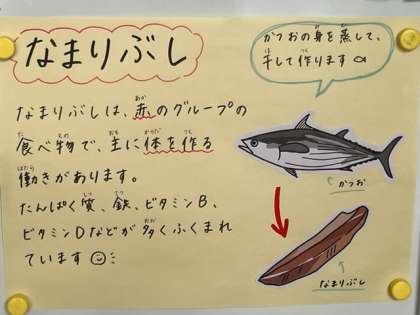 なまりぶし
かつおの身を蒸して、
干して作ります
なまりぶしは、赤のグループの
食べ物で、主に体を作る
働きがあります。
たんぱく質、鉄、ビタミンB、
ビタミンDなどが多くふくまれ
ています
かつお
なまりぶし